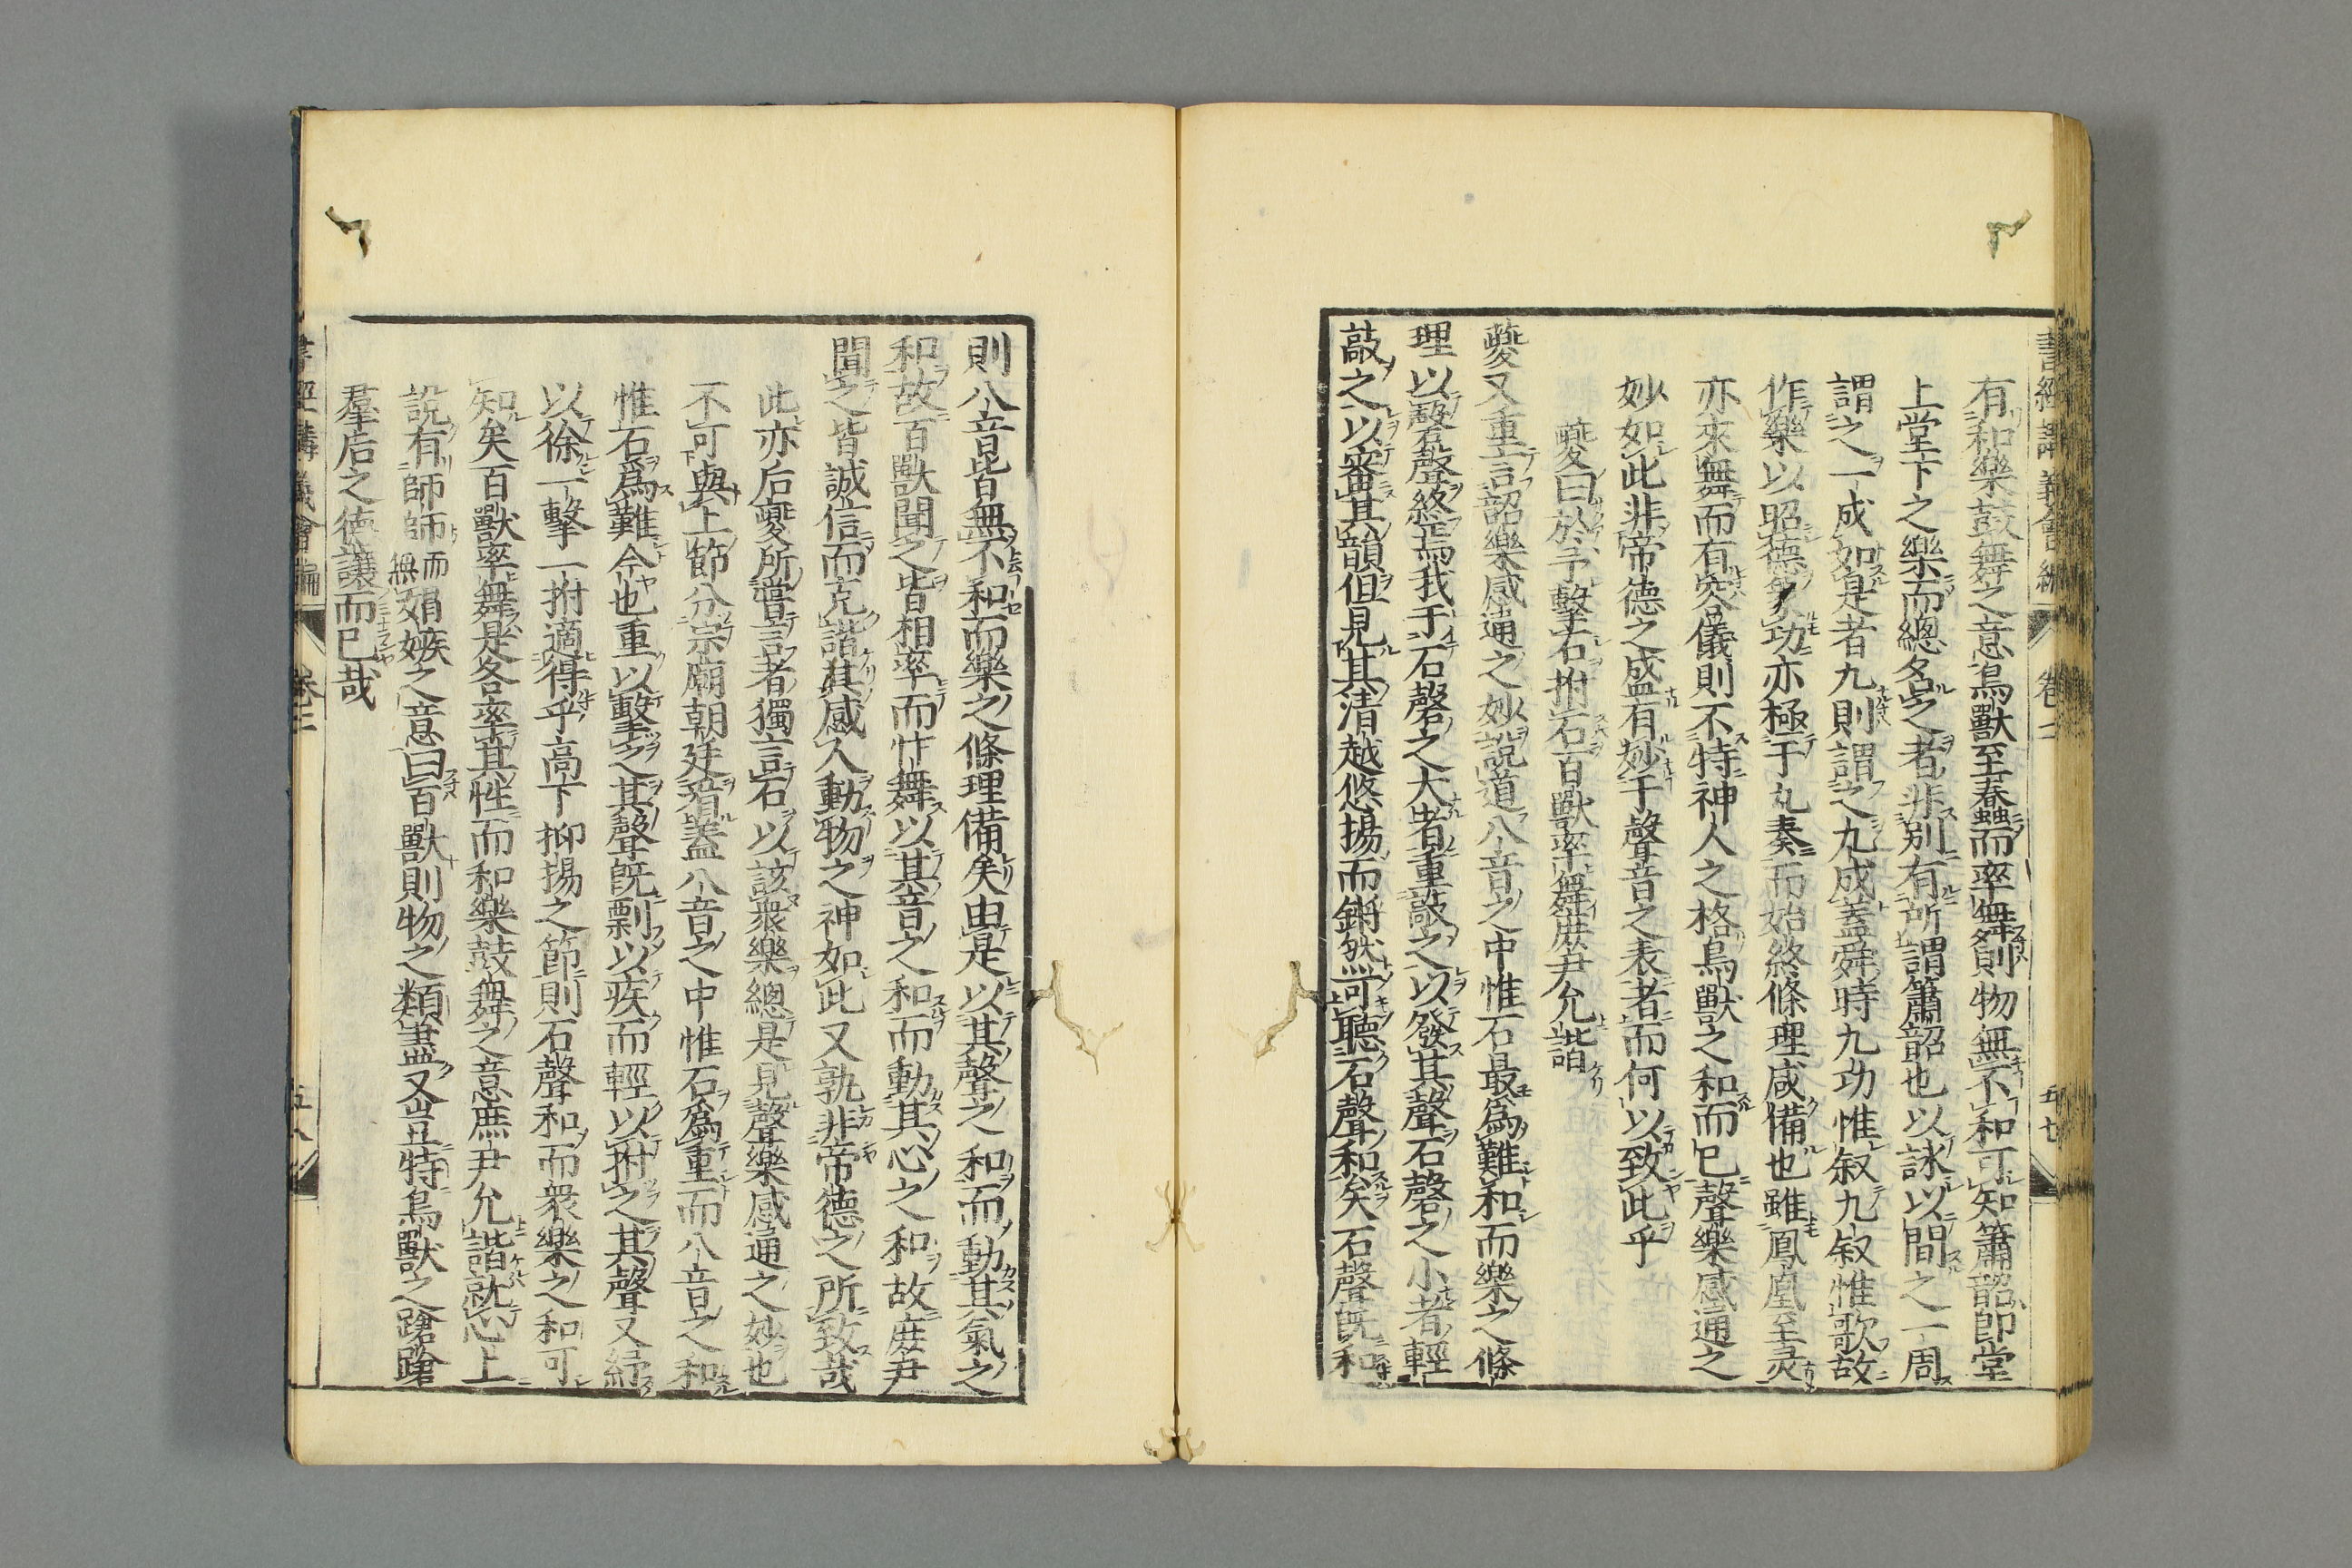 書經講義會編 卷二 五七
有和樂鼓舞之意鳥獸至春蠢而率舞則物無不和可知簫韶即堂
上堂下之樂而總名之者非別有所謂簫韶也以詠以間之一周
謂之一成如是者九則謂之九成蓋舜時九功惟叙九叙惟歌故
作樂以昭德象功亦極于九奏而始終條理咸備也雖鳳凰至灵
亦來舞而有容儀則不特神人之格鳥獸之和而已聲樂感通之
妙如此非帝德之盛有妙于聲音之表者而何以致此乎
夔曰於予擊石拊石百獸率舞庶尹允諧
夔又重言韶樂感通之妙說道八音之中惟石最爲難和而樂之條
理以磬聲終焉我于石磬之大者重敲之以發其聲石磬之小者輕
敲之以審其韻但見其清越悠揚而鏘然可聽石聲和矣石聲既和
則八音皆無不和而樂之條理備矣由是以其聲之和而動其氣之
和故百獸聞之皆相率而忭舞以其音之和而動其心之和故庶尹
聞之皆誠信而克諧其感人動物之神如此又孰非帝德之所致哉
此亦后夔所嘗言者獨言石以該衆樂總是見聲樂感通之妙也
不可與上節分宗廟朝廷看蓋八音之中惟石爲重而八音之和
惟石爲難今也重以擊之其聲既剽以疾而輕以拊之其聲又紓
以徐一擊一拊適得乎高下抑揚之節則石聲和而衆樂之和可
知矣百獸率舞是各率其性而和樂鼓舞之意庶尹允諧就心上
說有師師而無娼嫉之意曰百獸則物之類盡又豈特鳥獸之蹌蹌
羣后之德讓而已哉
書經講義會編 卷二 五八